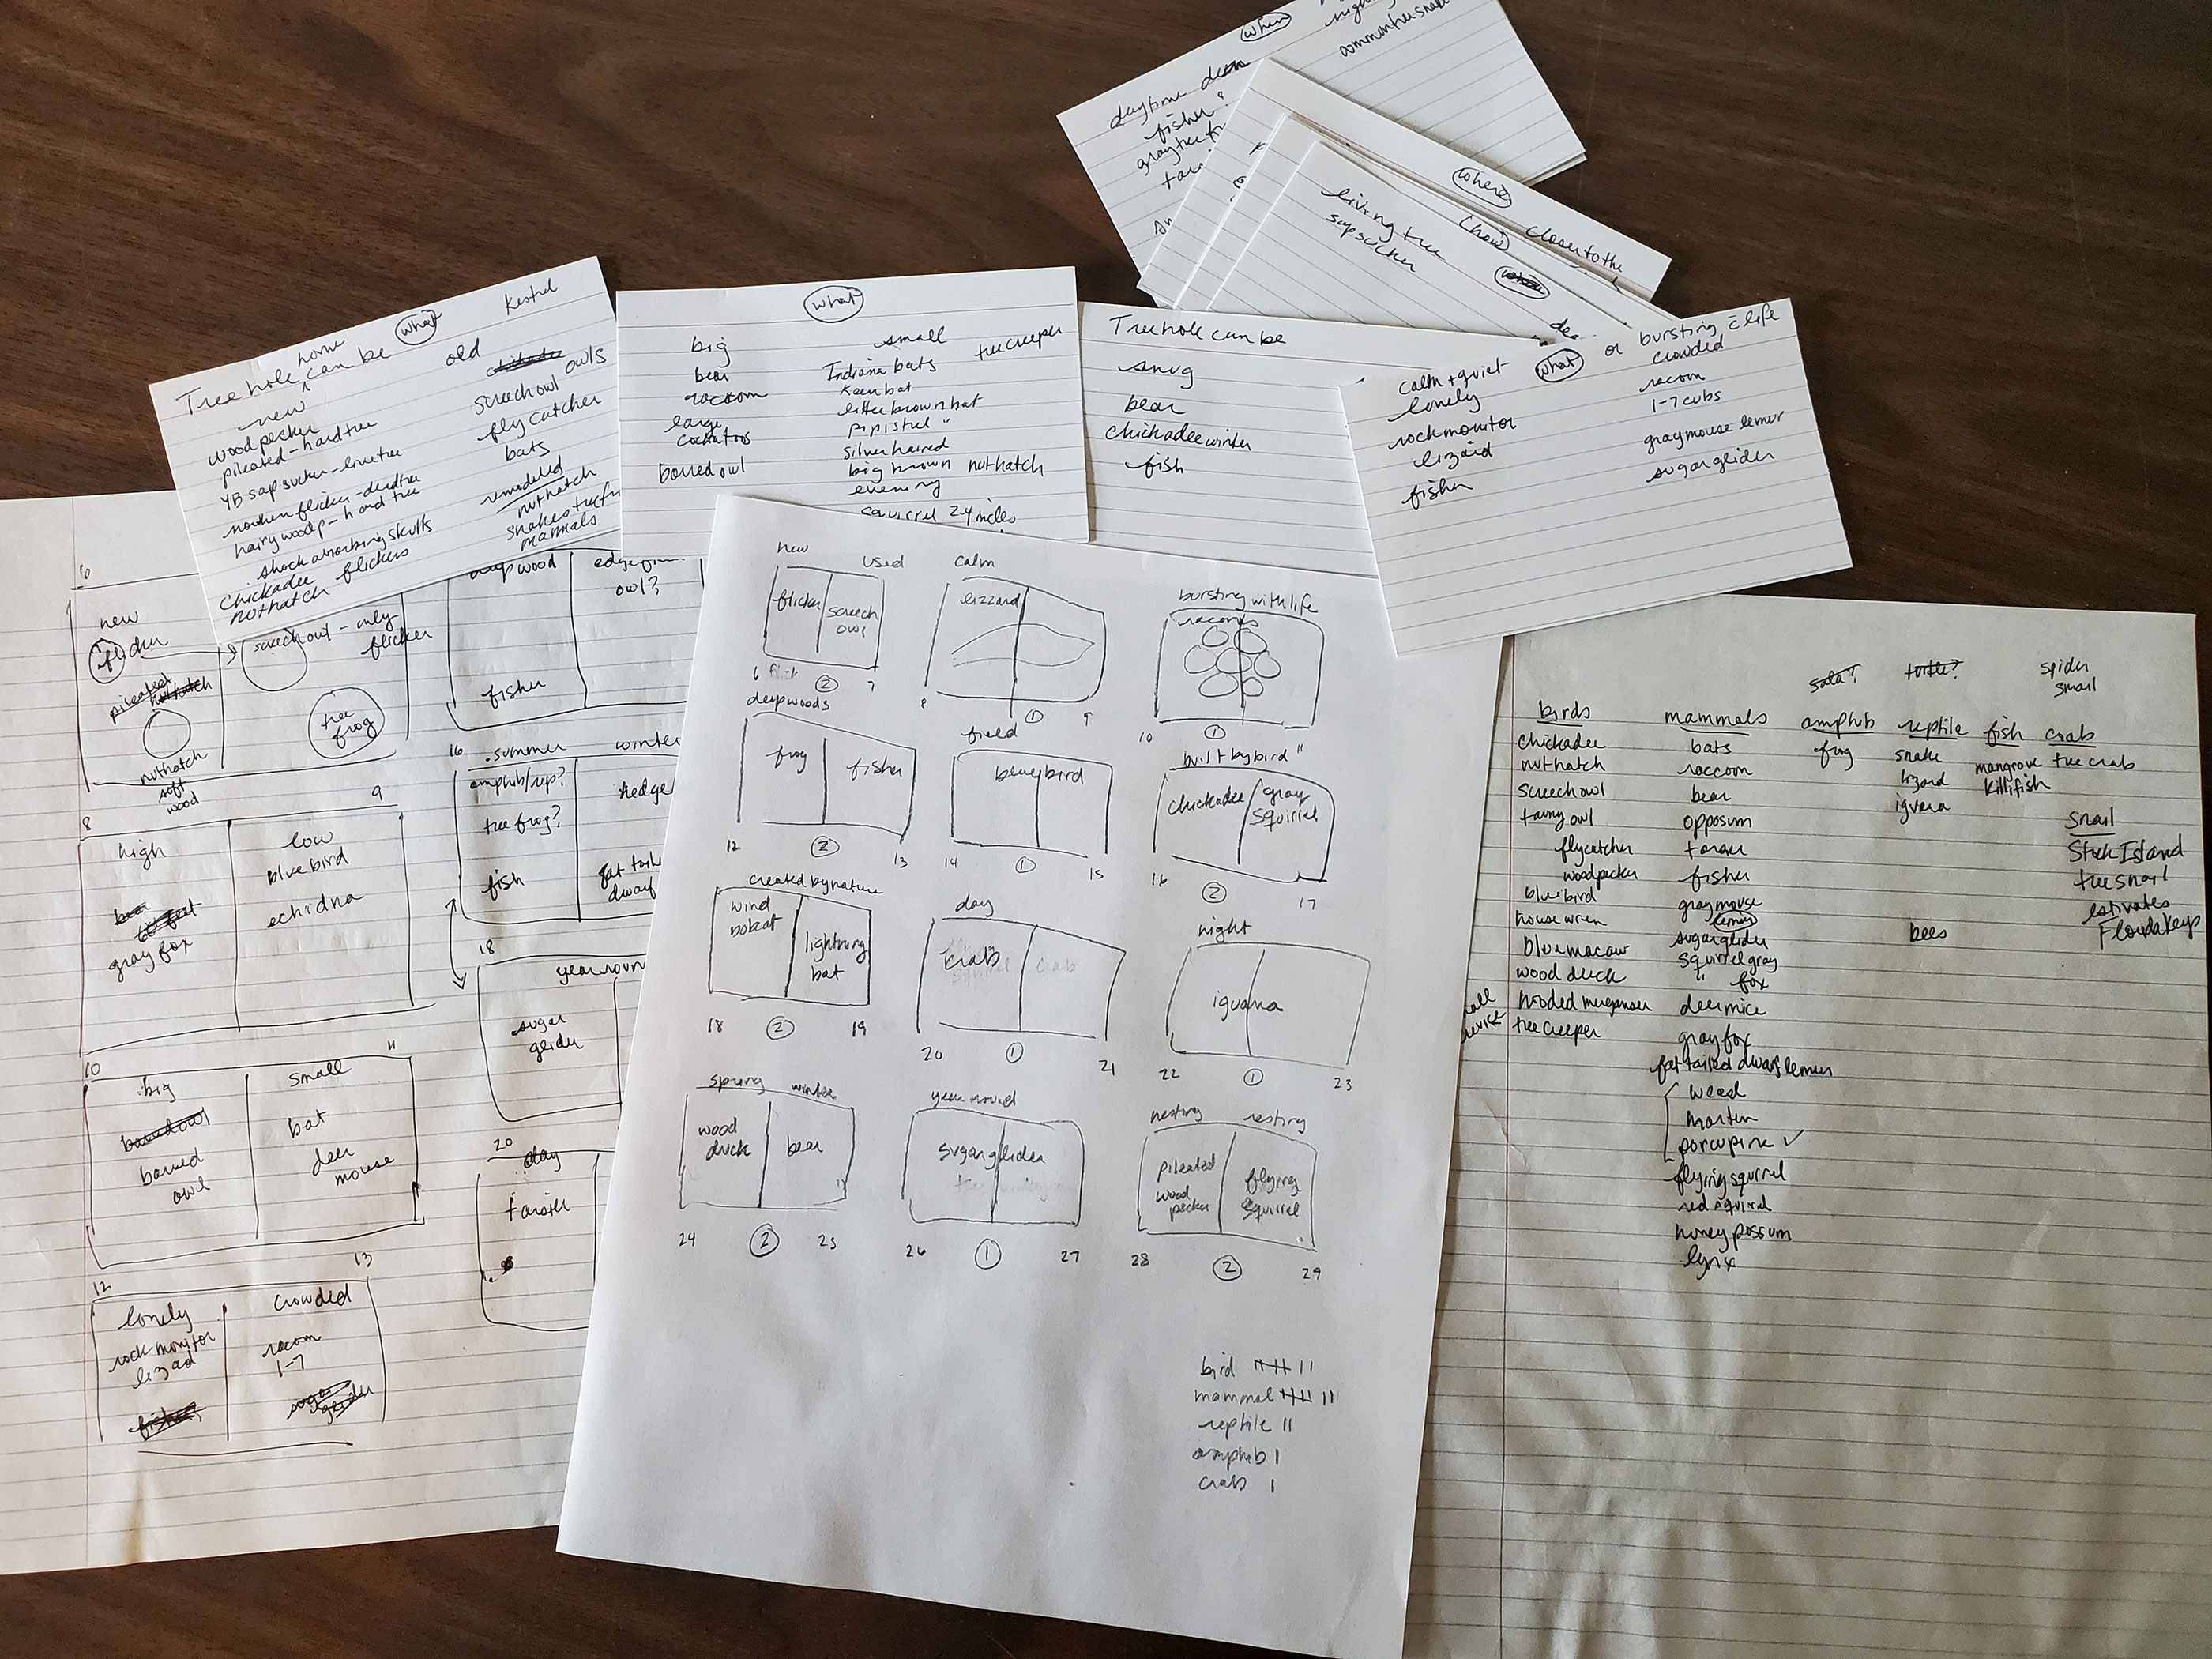 when
daytime
fisher
where
closer to the
how
living tree
sapsucker
Kestrel
what
home
Tree hole can be
old
new
owls
woodpecker
screech owl
pileated - hard tree
flycatcher
YB sapsucker - live tree
bats
northern flicker - dead tree
remodeled
hairy woodp - hard tree
nuthatch
shock absorbing skulls
mammals
chickadee flickers
nuthatch
what
big
small
treecreeper
bear
Indiana bats
racoom
Keen bat
large
little brown bat
cockatoos
pipistrel "
silver haired
barred owl
big brown nuthatch
evening
squirrel 2.4 inches
Tree hole can be
snug
bear
chickadee winter
fish
what
calm + quiet
or bursting c̄ life
lonely
crowded
rock monitor
racoon
lizard
1-7 cubs
fisher
gray mouse lemur
sugar glider
6
new
flicker
screech owl - only
flicker
pileated
nuthatch
tree
frog
nuthatch
soft
wood
8
9
high
low
bluebird
gray fox
echidna
10
11
big
small
barred owl
bat
barred
owl
deer
mouse
12
13
lonely
crowded
rock monitor
lizad
racoon
1-7
fisher
sugar
glider
deep wood
owl?
fisher
16
summer
winter
amphib/rep?
hedge
tree frog?
fish
fat tail
dwarf
18
year roun
sugar
glider
20
day
new
used
flicker
screech
owl
6
2
7
calm
lizzard
8
1
9
bursting with life
racoons
10
1
deep woods
frog
fisher
12
2
13
field
bluebird
14
1
15
built by bird "
chickadee
gray
squirrel
16
2
17
created by nature
wind
bobcat
lightning
bat
18
2
19
day
crab
crab
20
1
21
night
iguana
22
1
23
spring
winter
wood
duck
bear
24
2
25
year round
sugar glider
26
1
27
nesting
resting
pileated
wood
pecker
flying
squirrel
28
2
29
bird
mammal
reptile II
amphib I
crab I
turtle?
spider
snail
birds
mammals
amphib
reptile
fish
crab
chickadee
bats
frog
snake
mangrove
tree crab
nuthatch
raccoon
lizard
killifish
screech owl
bear
iguana
tawny owl
opposum
snail
flycatcher
Stock Island
woodpecker
fisher
tree snail
bluebird
gray mouse
lemur
house wren
sugar glider
bees
Florida Keys
blue macaw
squirrel gray
wood duck
" fox
hooded merganser
deer mice
treecreeper
gray fox
fat tailed dwarf lemur
marten
porcupine ✓
flying squirrel
red squirrel
honey possum
lynx